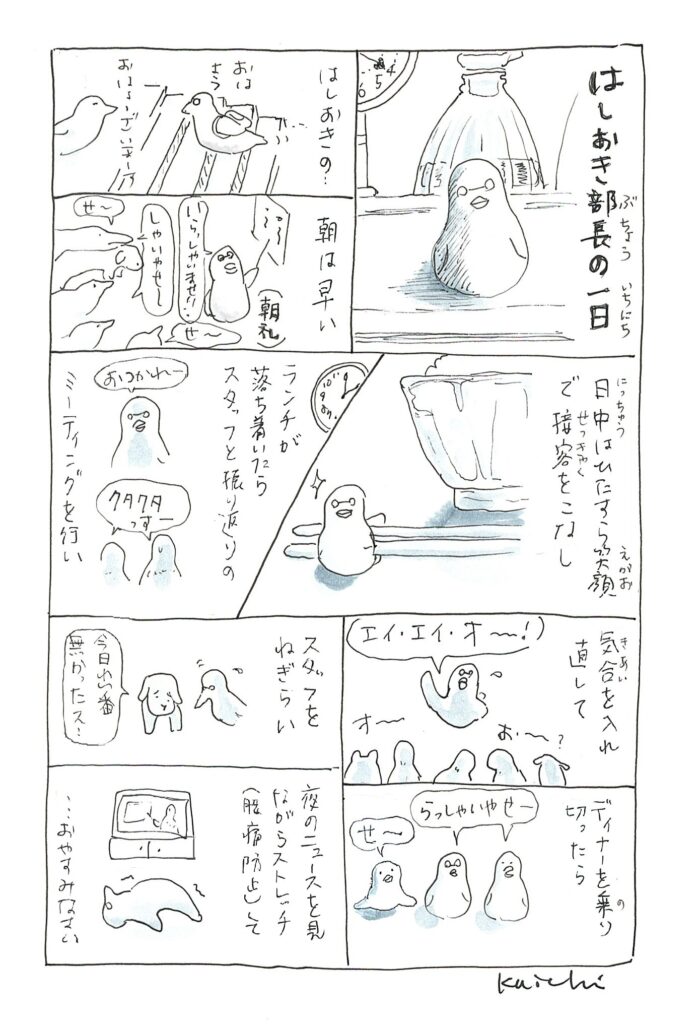 はしおき部長の一日
ぶちょう
いちにち
はしおきの…
おは
よう
おはよーございまーす
朝は早い
(朝礼)
いらっしゃいませ!!
しゃいやせ〜
せ〜
せ〜
日中はひたすら笑顔
にっちゅう
えがお
で接客をこなし
せっきゃく
ランチが
落ち着いたら
スタッフと振り返りの
ミーティングを行い
おつかれー
クタクタ
っすー
気合を入れ
きあい
直して
エイ・エイ・オー!
オ〜
お〜?
スタッフを
ねぎらい
今日わい番
無かったス!
ディナーを乗り
の
切ったら
らっしゃいやせー
せ〜
夜のニュースを見
ながらストレッチ
(腰痛防止)して
…おやすみなさい
Kaichi